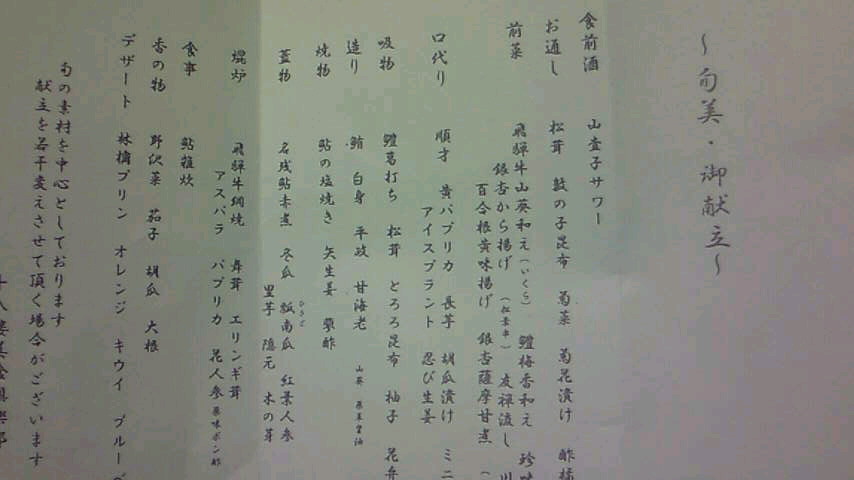 ～旬美・御献立～
食前酒 山査子サワー
お通し 松茸 数の子昆布 菊菜 菊花漬け 酢橘
前菜 飛騨牛山葵和え(いくら) 鱧梅香和え 珍味
銀杏から揚げ(松葉串) 友禅流し 川
百合根黄味揚げ 銀杏薩摩甘煮(
口代り 順才 黄パプリカ 長芋 胡瓜漬け ミニ
アイスプラント 忍び生姜
吸物 鱧葛打ち 松茸 とろろ昆布 柚子 花弁
造り 鮪 白身 平政 甘海老 山葵
焼物 鮎の塩焼き 矢生姜 蓼酢
蓋物 名残鮎赤煮 冬瓜 瓢南瓜 紅葉人参
ひさご
里芋 隠元 木の芽
焜炉 飛騨牛網焼 舞茸 エリンギ茸
アスパラ パプリカ 花人参 薬味ポン酢
食事 鮎雑炊
香の物 野沢菜 茄子 胡瓜 大根
デザート 林檎プリン オレンジ キウイ ブルーベ
旬の素材を中心としております
献立を若干変えさせて頂く場合がございます
十八楼